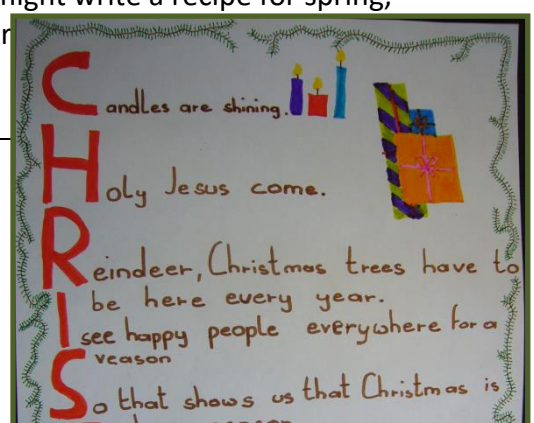 might write a recipe for spring,
Candles are shining.
Holy Jesus come.
Reindeer, Christmas trees have to
be here every year.
I see happy people everywhere for a
reason
So that shows us that Christmas is